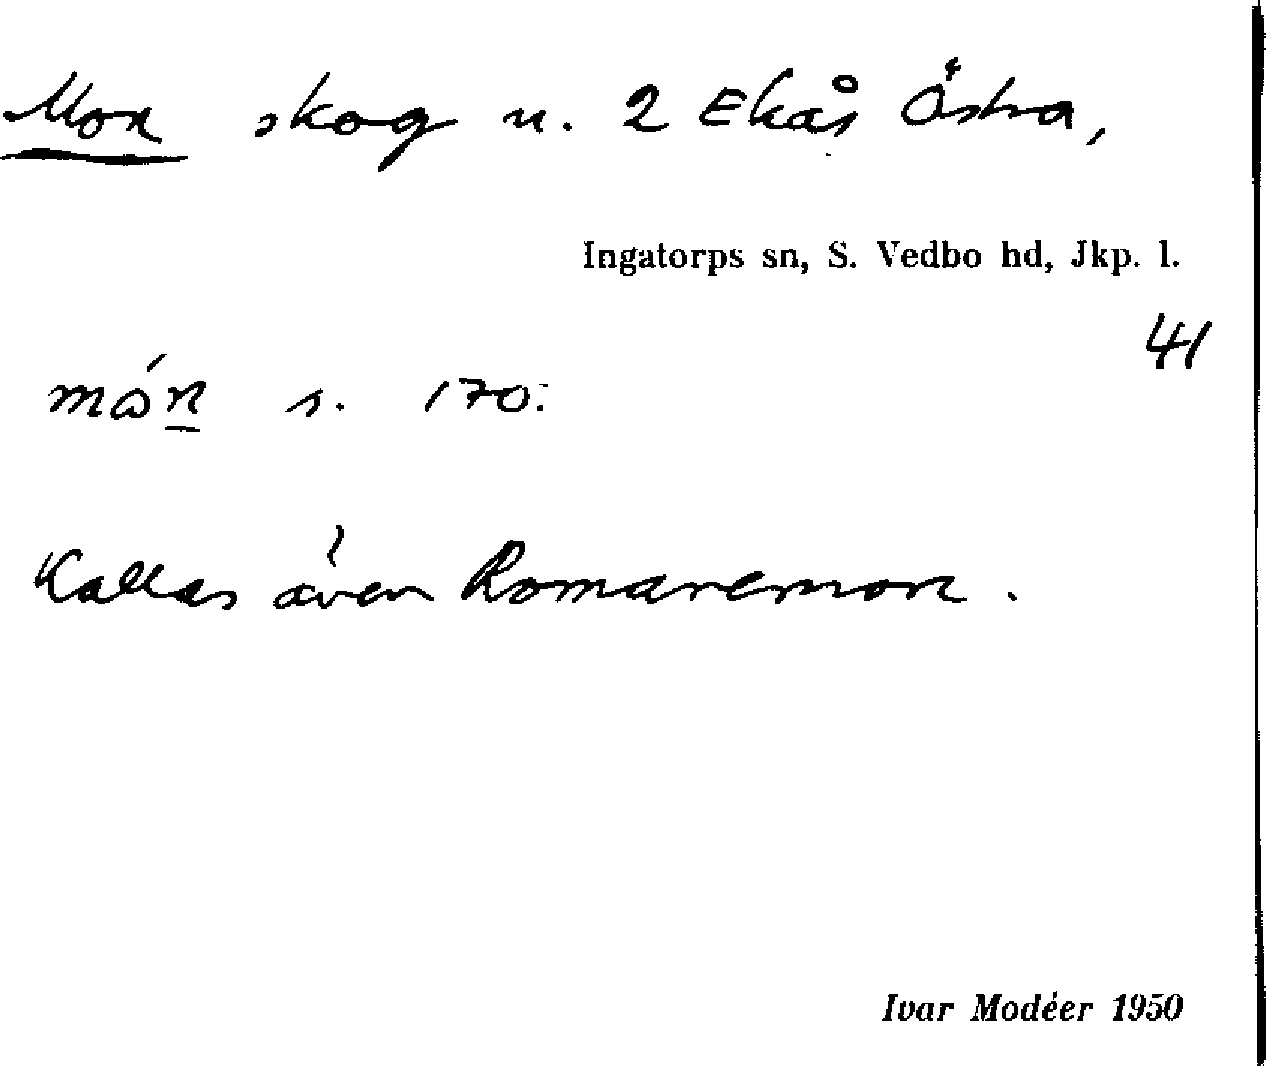 Mon skog n. 2 Ekås Östra,
Ingatorps sn, S. Vedbo hd, Jkp. l.
41
s. 170.
Kallas även Romaremon.
Ivar Modéer 1950